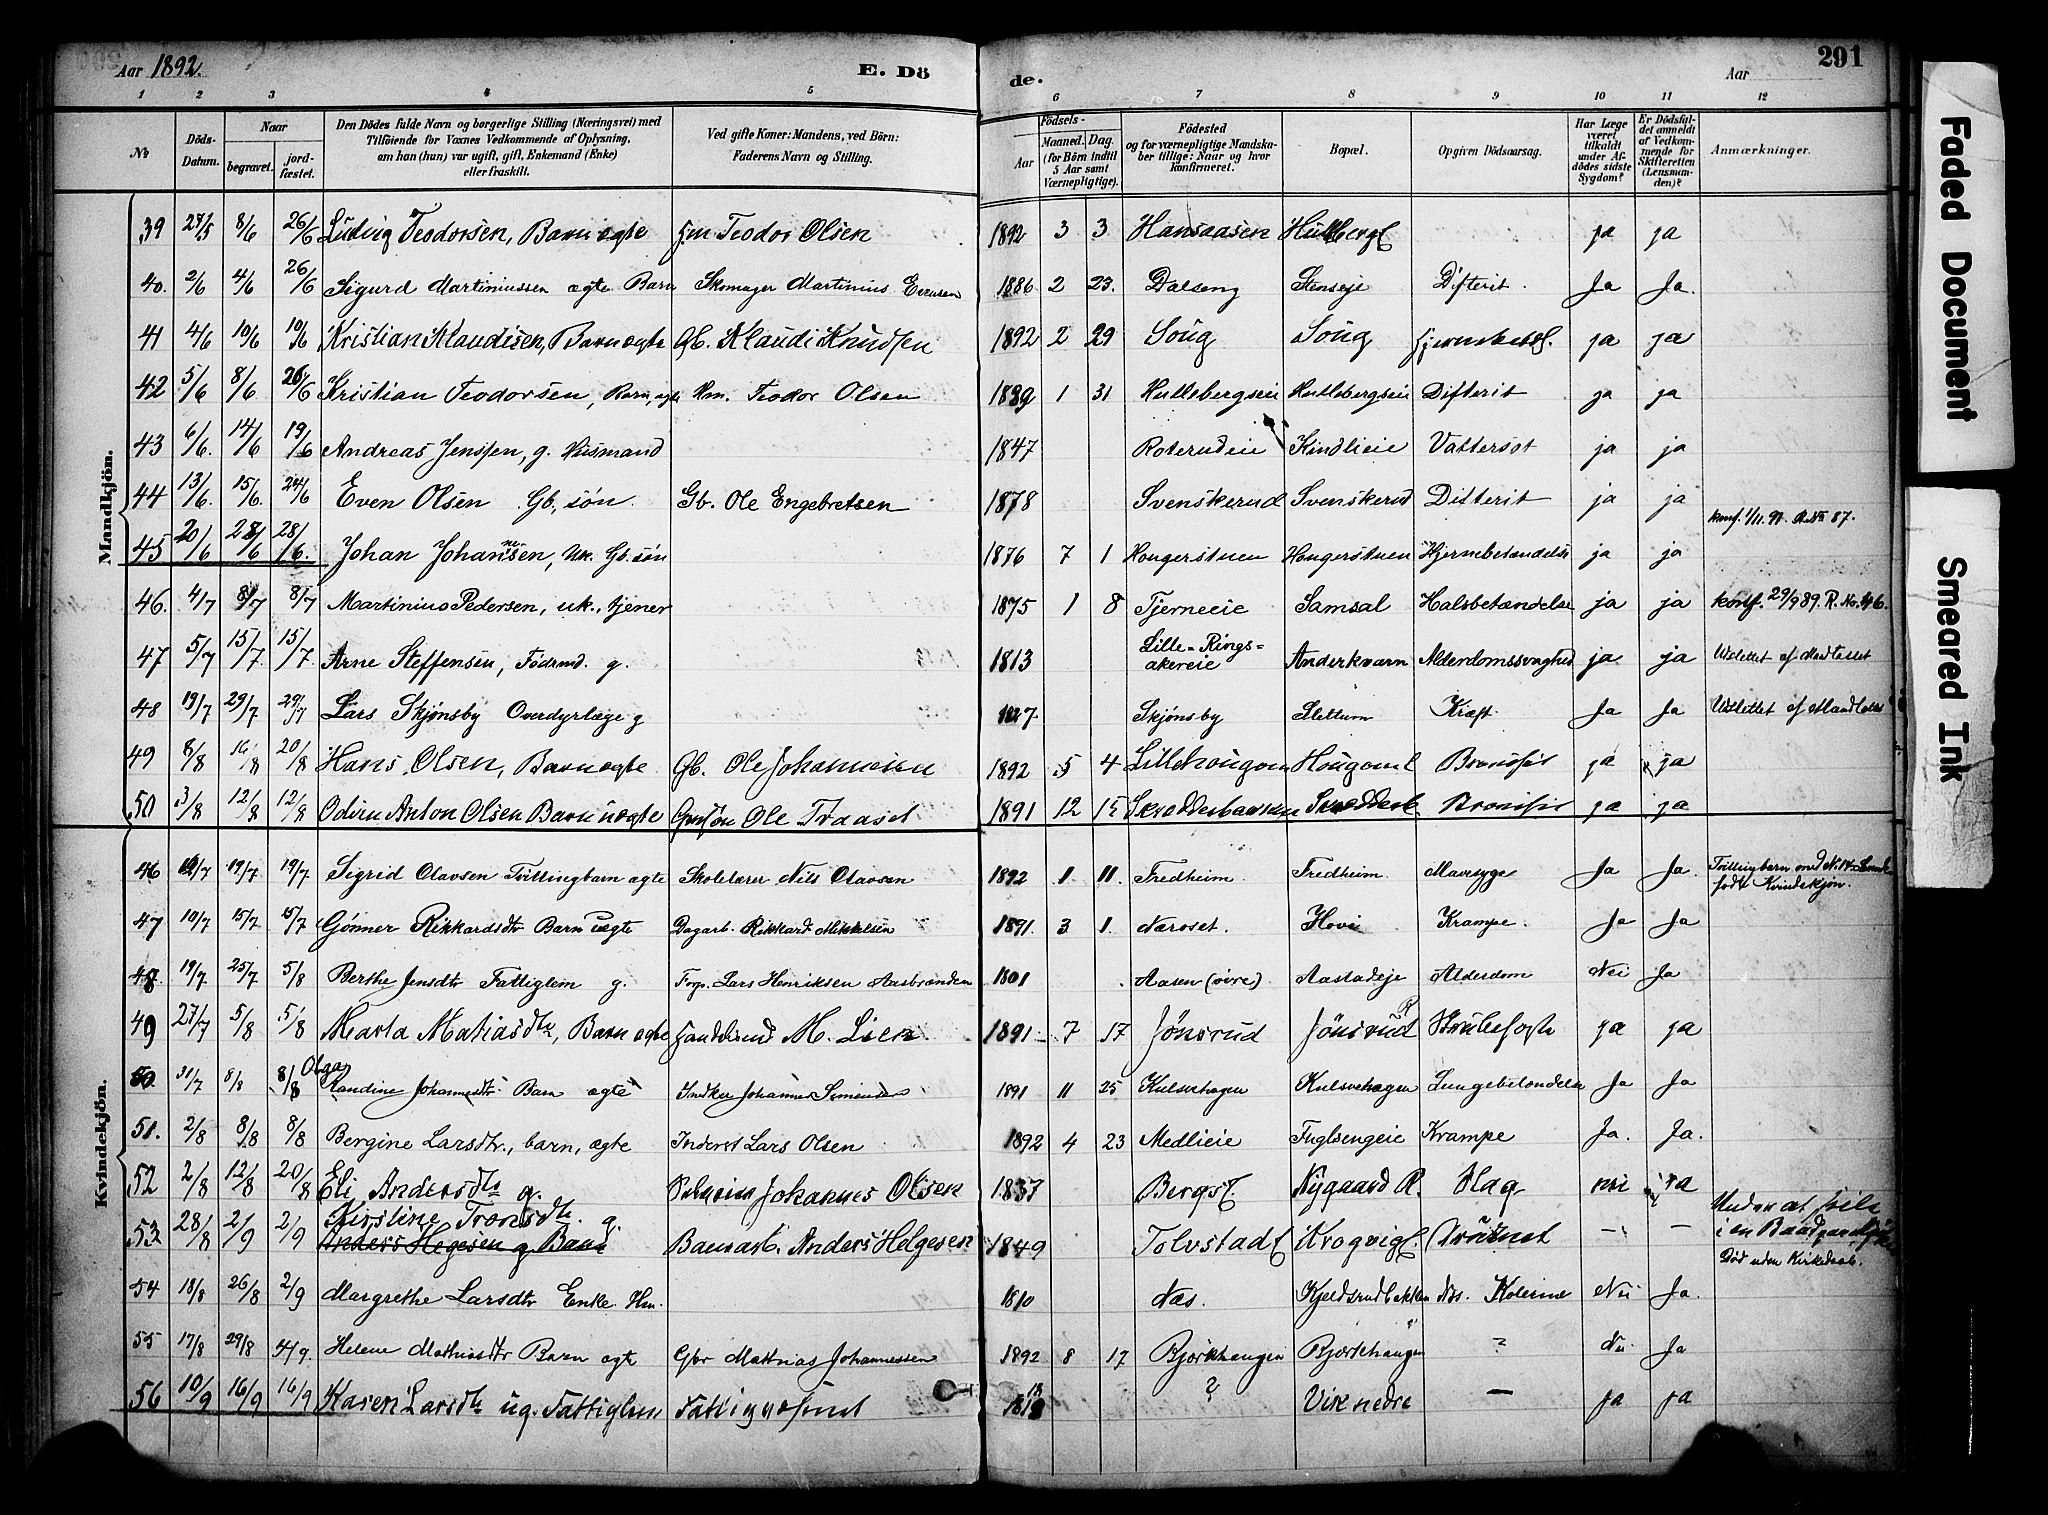 Aar 1892. E. Dö
de. Aar 291
1 2 3 4 5 6 7 8 9 10 11 12
No
Döds-Datum.
Naar
begravet.
jordfæstet.
Den Dödes fulde Navn og borgerlige Stilling (Næringsvei) med
Tilföiende for Voxnes Vedkommende af Oplysning,
om han (hun) var ugift, gift, Enkemand (Enke)
eller fraskilt.
Ved gifte Koner: Mandens, ved Börn:
Faderens Navn og Stilling.
Födsels-
Aar
Maaned. Dag.
(for Börn indtil
5 Aar samt
Værnepligtige).
Födested
og for værnepligtige Mandska-
ber tillige: Naar og hvor
konfirmeret.
Bopæl.
Opgiven Dödsaarsag.
Har Læge
været
tilkaldt
under Af-
dödes sidste
Sygdom?
Er Dödsfal-
det anmeldt
af Vedkom-
mende for
Skifteretten
(Lensman-
den)?
Anmærkninger.
Mandkjön.
39 27/5 8/6 26/6 Ludvig Teodorsen, Barn ægte Hm Teodor Olsen 1892 3 3 Hansaasen ja ja
40. 2/6 4/6 26/6 Sigurd Martiniussen ægte Barn Skomager Martinius Evensen 1886 2 23. Dalseng Stenseje Difterit. Ja Ja.
41 4/6 10/6 10/6 Kristian Klaudisen, Barn ægte Gb. Klaudi Knudsen 1892 2 29 Soug Soug ja ja
42 5/6 8/6 26/6 Kristian Teodorsen, Barn, ægte Hm. Teodor Olsen 1889 1 31 Hullebergseie Hullebergseie Difterit ja ja
43 6/6. 14/6 19/6 Andreas Jenssen, g. Husmand 1847 Roterudeie Kindlieie Vattersot ja ja
44 13/6. 15/6. 24/6 Even Olsen Gb. søn. Gb. Ole Engebretsen 1878 Svenskerud Svenskerud Difterit ja ja
konf. 1/11. 91. R. No 87.
45 20/6 28/6 28/6. Johan Johannesen, Uk. Gb. søn 1876 7 1 Hongerstuen Hongerstuen Hjernebetændelse ja ja
46. 4/7 8/7 8/7 Martinius Pedersen, uk., tjener 1875 1 8 Tjerneeie Samsal Halsbetændelse ja ja konf. 29/9 89. R. No. 46.
47 5/7 15/7. 15/7. Arne Steffensen, Födrmd. g. 1813 Lille-Rings-
akereie Anderkvarn Alderdomssvaghed ja ja Udslettet af Mandtallet
48 19/7 29/7 29/7 Lars Skjønsby Overdyrlæge g 1827 Skjønsby Slettum Kræft. Ja Ja Udslettet af Mandtallet
49 8/8 16/8 20/8 Hans Olsen, Barn ægte Gb. Ole Johannesen 1892 5 4 ja ja
50 3/8 12/8 12/8 Odvin Anton Olsen Barn uægte Ole Fraaset 1891 12 15 ja ja
Kvindekjön.
46 19/7 19/7 Sigrid Olavsen Tvillingbarn ægte Skolelærer Nils Olavsen 1892 1 11. Fredheim. Fredheim. Mavesyge Ja Ja. Tvillingbarn med N. 14
født Kvindekjön.
47 10/7 15/7 15/7 Gønner Rikkardsdtr Barn uægte Dagarb. Rikkard Mikkelsen 1891. 3. 1. Næroset. Hovi Krampe. Ja Ja
48. 19/7 25/7 5/8 Berthe Jensdtr Fattiglem g. Lars Henriksen Aasbrænden 1801 Aasen (øvre) Aastadeje Alderdom Nei Ja
49 27/7 5/8 5/8 Marta Matiasdtr, Barn ægte Handelsmd M. Lien 1891 7 17 Jønsrud Jönsrud R Strubehoste ja ja
50. 31/7 8/8 8/8 Olga
Randine Johannesdtr Barn ægte Johannes Simensen 1891 11 25 Kulsvehagen Kulsvehagen Lungebetændelse Ja Ja
51. 2/8 8/8 8/8 Bergine Larsdtr., barn, ægte Inderst Lars Olsen 1892 4 23 Medlieie Fuglsengeie Krampe Ja. Ja.
52 2/8 12/8 20/8 Eli Andersdtr g. Johannes Olsen 1837 Bergs. Nygaard R. Slag nei ja
53 28/8 2/9 2/9 Kirstine Tronsdtr. g.
Anders Hegesen g. Bans Banearb. Anders Helgesen 1849 Tolvstad Krogvig Druknet – – Under at seile
i en Baad paa
Död uden Kirkebok.
54 18/8 26/8 2/9 Margrethe Larsdtr Enke Hm. 1810 Næs. Kolerine Nei Ja.
55 17/8 29/8 4/9. Helene Mathiasdtr Barn ægte Gbr Mathias Johannessen 1892 8 17 Bjørkhaugen Bjørkhaugen ? Nei. Ja
56 10/9 16/9 16/9 Karen Larsdtr ug. Fattiglem 18 ? Vik nedre – ja ja
Faded Document
Smeared Ink